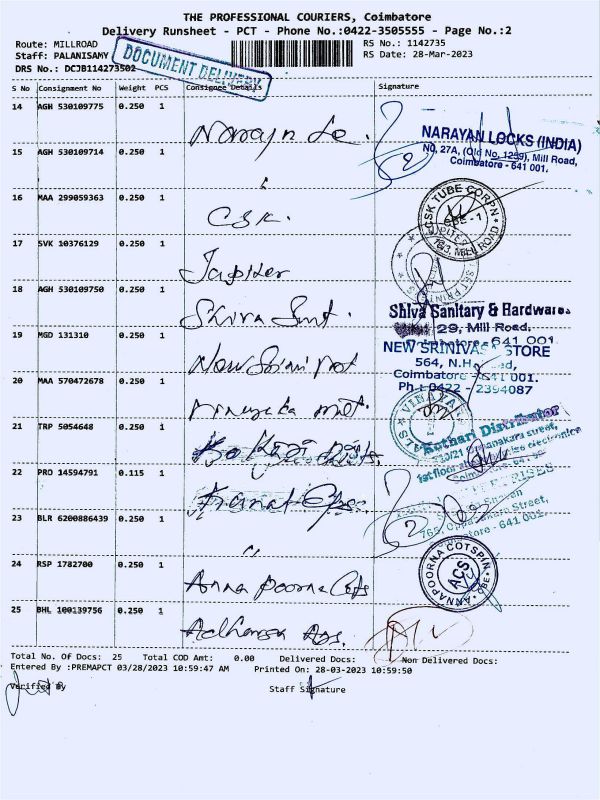 THE PROFESSIONAL COURIERS, Coimbatore
Delivery Runsheet - PCT - Phone No.:0422-3505555 - Page No.:2
Route: MILLROAD
RS No.: 1142735
Staff: PALANISAMY
RS Date: 28-Mar-2023
DRS No.: DCJB114273502
DOCUMENT DELIVERY
S No Consignment No Weight PCS Consignee Details Signature
14 AGH 530109775 0.250 1
NARAYAN LOCKS (INDIA)
NO, 27A, (Old No, 1259), Mill Road,
Coimbatore - 641 001.
15 AGH 530109714 0.250 1
16 MAA 299059363 0.250 1 CSK.
CSK TUBE CORPN
CBE - 1
MILL ROAD
17 SVK 10376129 0.250 1 Jupiter
18 AGH 530109750 0.250 1 Shiva Snt.
Shiva Sanitary & Hardware
29, Mill Road,
641 001.
19 MGD 131310 0.250 1 New Srini
NEW SRINIVAS STORE
564, N.H.
Coimbatore - 641 001.
Ph : 0422 - 2394087
20 MAA 570472678 0.250 1
VINAYAKA
21 TRP 5054648 0.250 1
Kothari Distributor
22 PRO 14594791 0.115 1
23 BLR 6200886439 0.250 1
765, Oppanakara Street,
641 001.
24 RSP 1782700 0.250 1 Anna poorna
ANNAPOORNA COTSPIN
ACS
CBE.
25 BHL 100139756 0.250 1
Total No. Of Docs: 25 Total COD Amt: 0.00 Delivered Docs: Non Delivered Docs:
Entered By :PREMAPCT 03/28/2023 10:59:47 AM Printed On: 28-03-2023 10:59:50
Verified By
Staff Signature